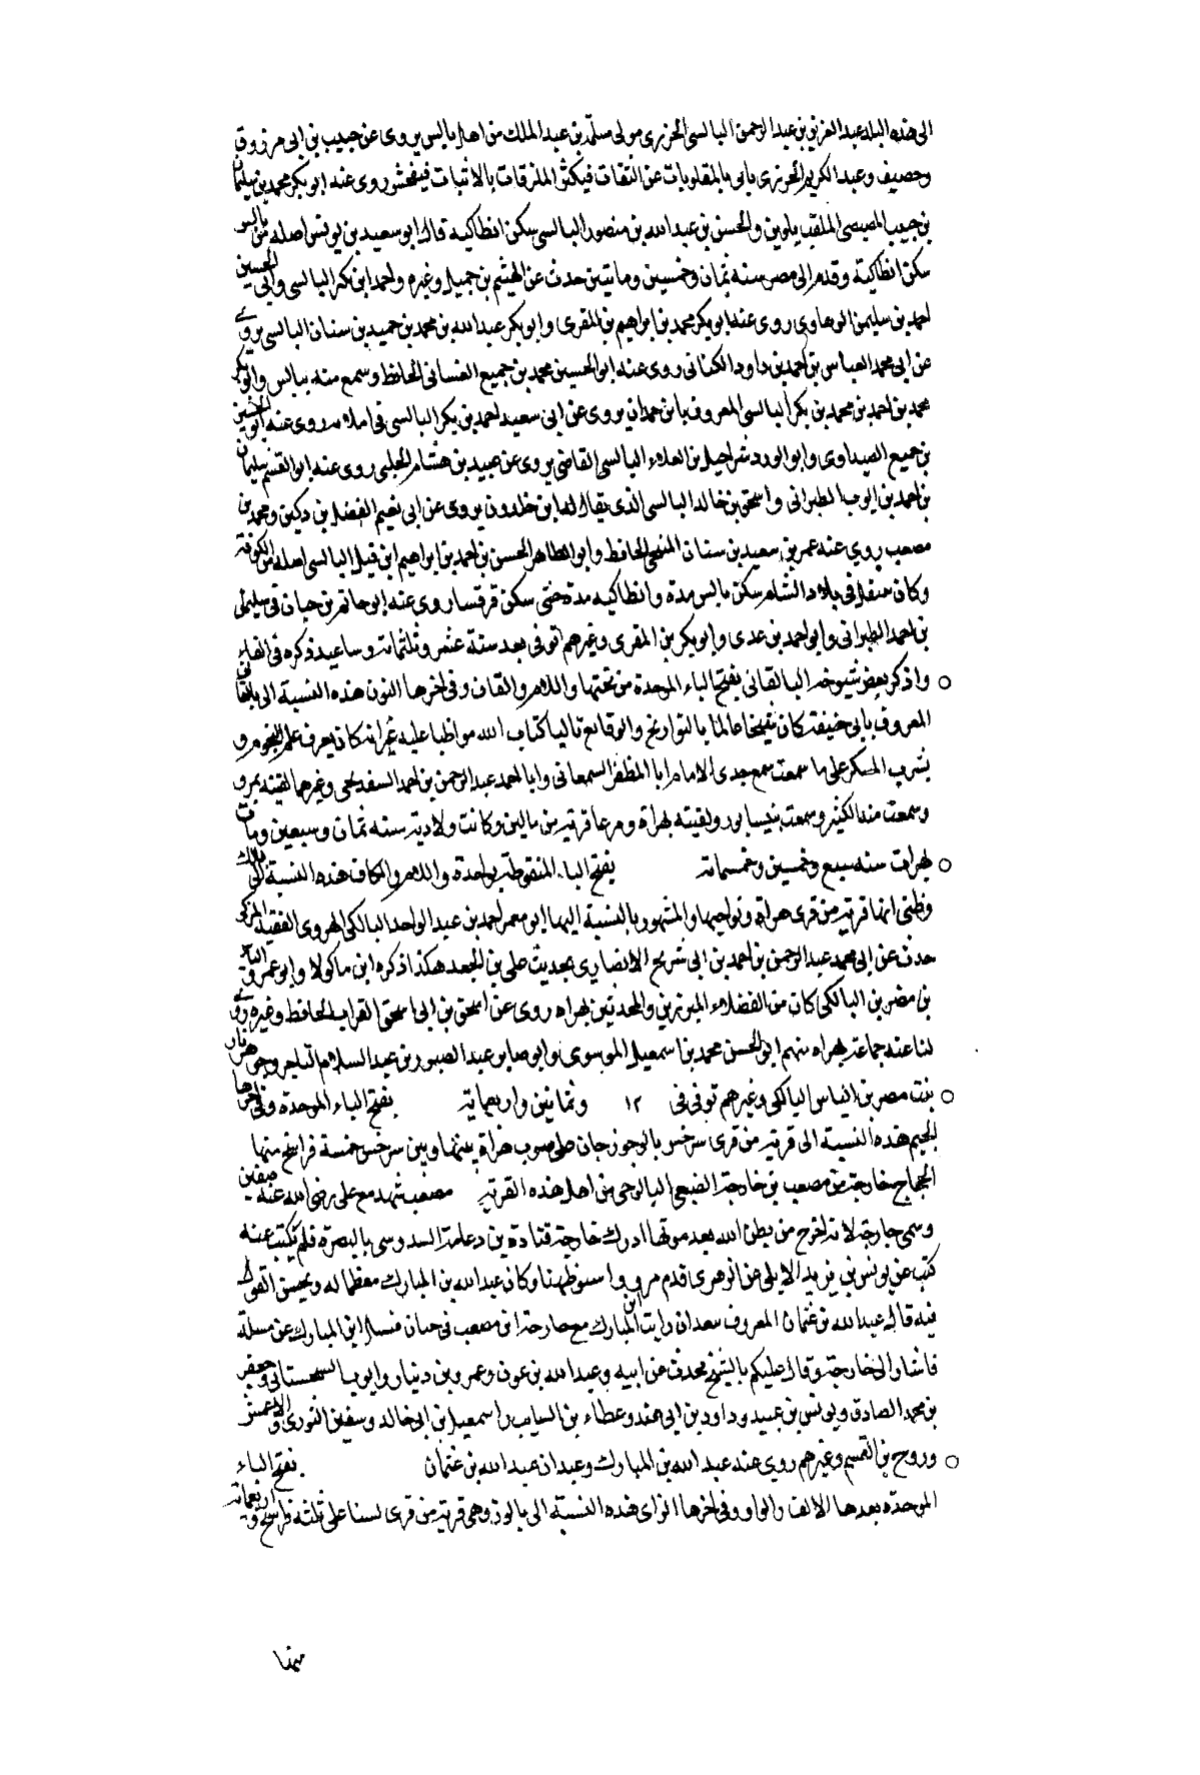 الى هذه البلد عبد العزيز بن عبد الرحمن البالسى الجزرى مولى مسلمة بن عبد الملك من اهل بالس يروى عن حبيب بن ابى مرزوق
وخصيف وعبد الكريم الجزرى ياتى بالمقلوبات عن الثقات فيكثر الملزقات بالاثبات فيفحش روى عنه ابو بكر محمد بن سليمان
بن حبيب المصيصى الملقب بلوين والحسن بن عبد الله بن منصور البالسى سكن انطاكية قال ابو سعيد بن يونس اصله من بالس
سكن انطاكية وقدم الى مصر سنه ثمان وخمسين وماتين حدث عن الهيثم بن جميل وغيره واحمد ابن بكر البالسى وابى الحسين
احمد بن سليمن الرهاوى روى عنه ابو بكر محمد بن ابراهيم بن المقرى وابو بكر عبد الله بن محمد بن حميد بن سنان البالسى يروى
عن ابى محمد العباس بن احمد بن داود الكنانى روى عنه ابو الحسين محمد بن جميع الغسانى الحافظ وسمع منه ببالس وابو بكر
محمد بن احمد بن محمد بن بكر البالسى المعروف بابن حمدان يروى عن ابى سعيد احمد بن بكر البالسى روى عنه ابو الحسين
بن جميع الصيداوى وابو الورد شراحيل بن العلاء البالسى القاضى يروى عن عبيد بن هشام الحلبى روى عنه ابو القسم سليمان
بن احمد بن ايوب الطبرانى واسحق بن خالد البالسى الذى يقال له ابن خلدون يروى عن ابى نعيم الفضل بن دكين ومحمد بن
مصعب روى عنه عمر بن سعيد بن سنان المنبجى الحافظ وابو الطاهر الحسن بن احمد بن ابراهيم ابن فيل البالسى اصله من الكوفة
وكان متنقلا فى بلاد الشام سكن بالس مدة وانطاكيه مدة حتى سكن قرقسا روى عنه ابو حاتم بن حبان سليمن
بن احمد الطبرانى وابو احمد بن عدى وابو بكر بن المقرى وغيرهم توفى بعد سنة عشر وثلثمائة وساعيد ذكره فى الفاء
واذكر بعض شيوخه البالقانى بفتح الباء الموحدة من تحتها واللام والقاف وفى اخرها النون هذه النسبة الى بالقان
المعروف بابى حنيفة كان شيخا عالما بالتواريخ والوقائع تاليا كتاب الله مواظبا عليه غير انه كان يعرف علم النجوم و
يشرب المسكر على ما سمعت سمع جدى الامام ابا المظفر السمعانى وابا احمد عبد الرحمن بن احمد وغيرهما لقيته بمرو
وسمعت منه الكثير وسمعت بنيسابور ولقيته بهراة ومرعا قرية من مالين وكانت ولادته سنه ثمان وسبعين ومات
بهراة سنه سبع وخمسين وخمسمائة بفتح الباء المنقوطة بواحدة واللام والكاف هذه النسبة الى بالك
وظنى انها قرية من قرى هراة ونواحيها والمشهور بالنسبة اليها ابو معمر احمد بن عبد الواحد البالكى الهروى الفقيه المزكى
حدث عن ابى محمد عبد الرحمن بن احمد بن ابى شريح الانصارى بحديث على بن الجعد هكذا ذكره ابن ماكولا وابو عمرو الياس
بن مضر بن البالكى كان من الفضلاء المبرزين والمحدثين بهراه روى عن اسحق بن ابى اسحق القراب الحافظ وغيره روى
لنا عنه جماعة بهراه منهم ابو الحسن محمد بن اسمعيل الموسوى وابو صابر عبد الصبور بن عبد السلام التاجر وجوهرناز
بنت مضر بن الياس البالكى وغيرهم توفى فى ١٢ وثمانين واربعمائة بفتح الباء الموحدة وفى اخرها
الجيم هذه النسبة الى قرية من قرى سرخس بالوجوزجان على صوب هراة بينها وبين سرخس خمسة فراسخ منها
الحجاج خارجة بن مصعب بن خارجة الضبعى البالوجى من اهل هذه القرية مصعب شهد مع على رضى الله عنه صفين
وسمى خارجة لانه اخرج من بطن امه بعد موتها ادرك خارجة قتادة بن دعامة السدوسى بالبصرة فلم يكتب عنه
كتب عن يونس بن يزيد الايلى عن الزهرى قدم مرو واستوطنها وكان عبد الله بن المبارك معظما له ويحسن القول
فيه قال عبد الله بن عثمان المعروف بعبدان رايت ابن المبارك مع خارجة ابن مصعب فى خان فسئل ابن المبارك عن مسئلة
فاشار الى خارجة وقال عليكم بالشيخ يحدث عن ابيه وعبد الله بن عون وعمرو بن دينار وايوب السحستانى وجعفر
بن محمد الصادق ويونس بن عبيد وداود بن ابى هند وعطاء بن السايب واسمعيل بن ابى خالد وسفين الثورى والاعمش
وروح بن القسم وغيرهم روى عنه عبد الله بن المبارك وعبدان عبد الله بن عثمان بفتح الباء
الموحدة بعدها الالف والواو وفى اخرها الزاى هذه النسبة الى بالوز وهى قرية من قرى نسا على ثلثه فراسخ او اربعة
منها